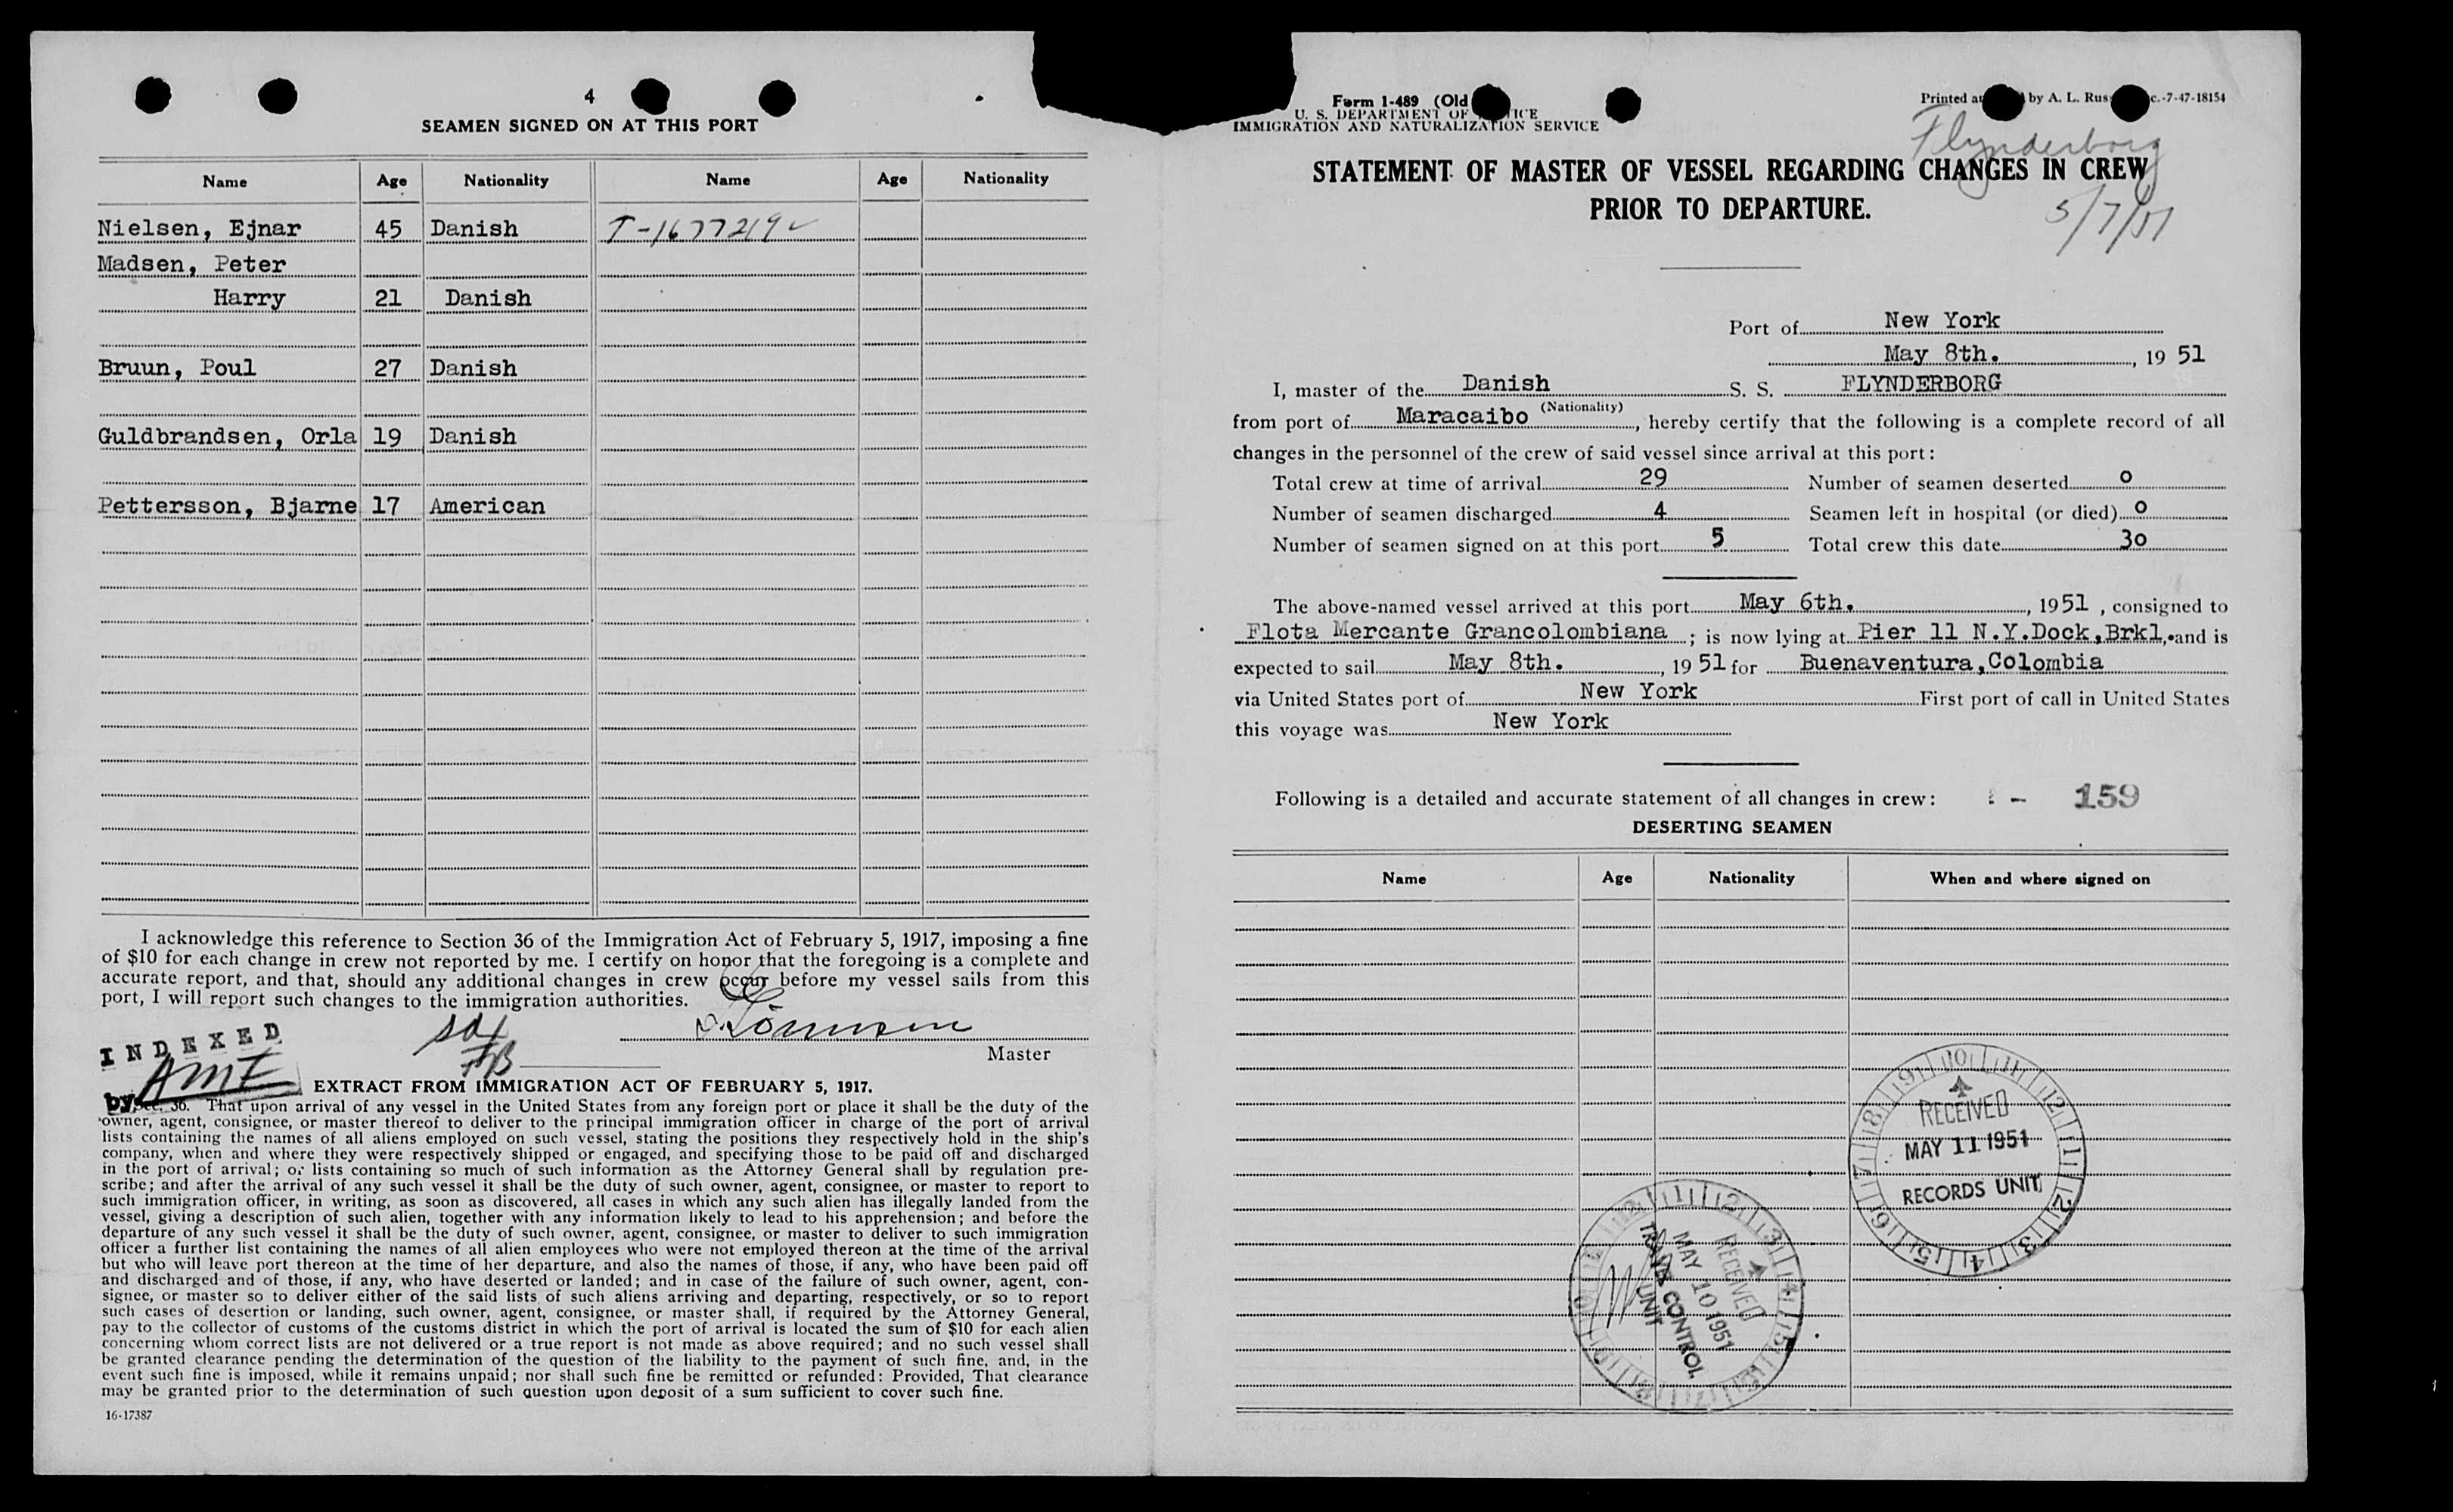 4
SEAMEN SIGNED ON AT THIS PORT
Name Age Nationality Name Age Nationality
Nielsen, Ejnar 45 Danish T-1677219
Madsen, Peter
Harry 21 Danish
Bruun, Poul 27 Danish
Guldbrandsen, Orla 19 Danish
Pettersson, Bjarne 17 American
I acknowledge this reference to Section 36 of the Immigration Act of February 5, 1917, imposing a fine
of $10 for each change in crew not reported by me. I certify on honor that the foregoing is a complete and
accurate report, and that, should any additional changes in crew occur before my vessel sails from this
port, I will report such changes to the immigration authorities.
Master
INDEXED
by
EXTRACT FROM IMMIGRATION ACT OF FEBRUARY 5, 1917.
Sec. 36. That upon arrival of any vessel in the United States from any foreign port or place it shall be the duty of the
owner, agent, consignee, or master thereof to deliver to the principal immigration officer in charge of the port of arrival
lists containing the names of all aliens employed on such vessel, stating the positions they respectively hold in the ship's
company, when and where they were respectively shipped or engaged, and specifying those to be paid off and discharged
in the port of arrival; or lists containing so much of such information as the Attorney General shall by regulation pre-
scribe; and after the arrival of any such vessel it shall be the duty of such owner, agent, consignee, or master to report to
such immigration officer, in writing, as soon as discovered, all cases in which any such alien has illegally landed from the
vessel, giving a description of such alien, together with any information likely to lead to his apprehension; and before the
departure of any such vessel it shall be the duty of such owner, agent, consignee, or master to deliver to such immigration
officer a further list containing the names of all alien employees who were not employed thereon at the time of the arrival
but who will leave port thereon at the time of her departure, and also the names of those, if any, who have been paid off
and discharged and of those, if any, who have deserted or landed; and in case of the failure of such owner, agent, con-
signee, or master so to deliver either of the said lists of such aliens arriving and departing, respectively, or so to report
such cases of desertion or landing, such owner, agent, consignee, or master shall, if required by the Attorney General,
pay to the collector of customs of the customs district in which the port of arrival is located the sum of $10 for each alien
concerning whom correct lists are not delivered or a true report is not made as above required; and no such vessel shall
be granted clearance pending the determination of the question of the liability to the payment of such fine, and, in the
event such fine is imposed, while it remains unpaid; nor shall such fine be remitted or refunded: Provided, That clearance
may be granted prior to the determination of such question upon deposit of a sum sufficient to cover such fine.
16-17387
Form 1-489 (Old
U. S. DEPARTMENT OF
IMMIGRATION AND NATURALIZATION SERVICE
Printed by A. L. -7-47-18154
Flynderborg
5/7/51
STATEMENT OF MASTER OF VESSEL REGARDING CHANGES IN CREW
PRIOR TO DEPARTURE.
Port of New York
May 8th., 19 51
I, master of the Danish S. S. FLYNDERBORG
(Nationality)
from port of Maracaibo, hereby certify that the following is a complete record of all
changes in the personnel of the crew of said vessel since arrival at this port:
Total crew at time of arrival 29 Number of seamen deserted 0
Number of seamen discharged 4 Seamen left in hospital (or died) 0
Number of seamen signed on at this port 5 Total crew this date 30
The above-named vessel arrived at this port May 6th., 1951, consigned to
Flota Mercante Grancolombiana; is now lying at Pier 11 N.Y.Dock,Brkl, and is
expected to sail May 8th., 19 51 for Buenaventura,Colombia
via United States port of New York First port of call in United States
this voyage was New York
Following is a detailed and accurate statement of all changes in crew: - 159
DESERTING SEAMEN
Name Age Nationality When and where signed on
RECEIVED
MAY 11 1951
RECORDS UNIT
RECEIVED
MAY 10 1951
CONTROL
UNIT